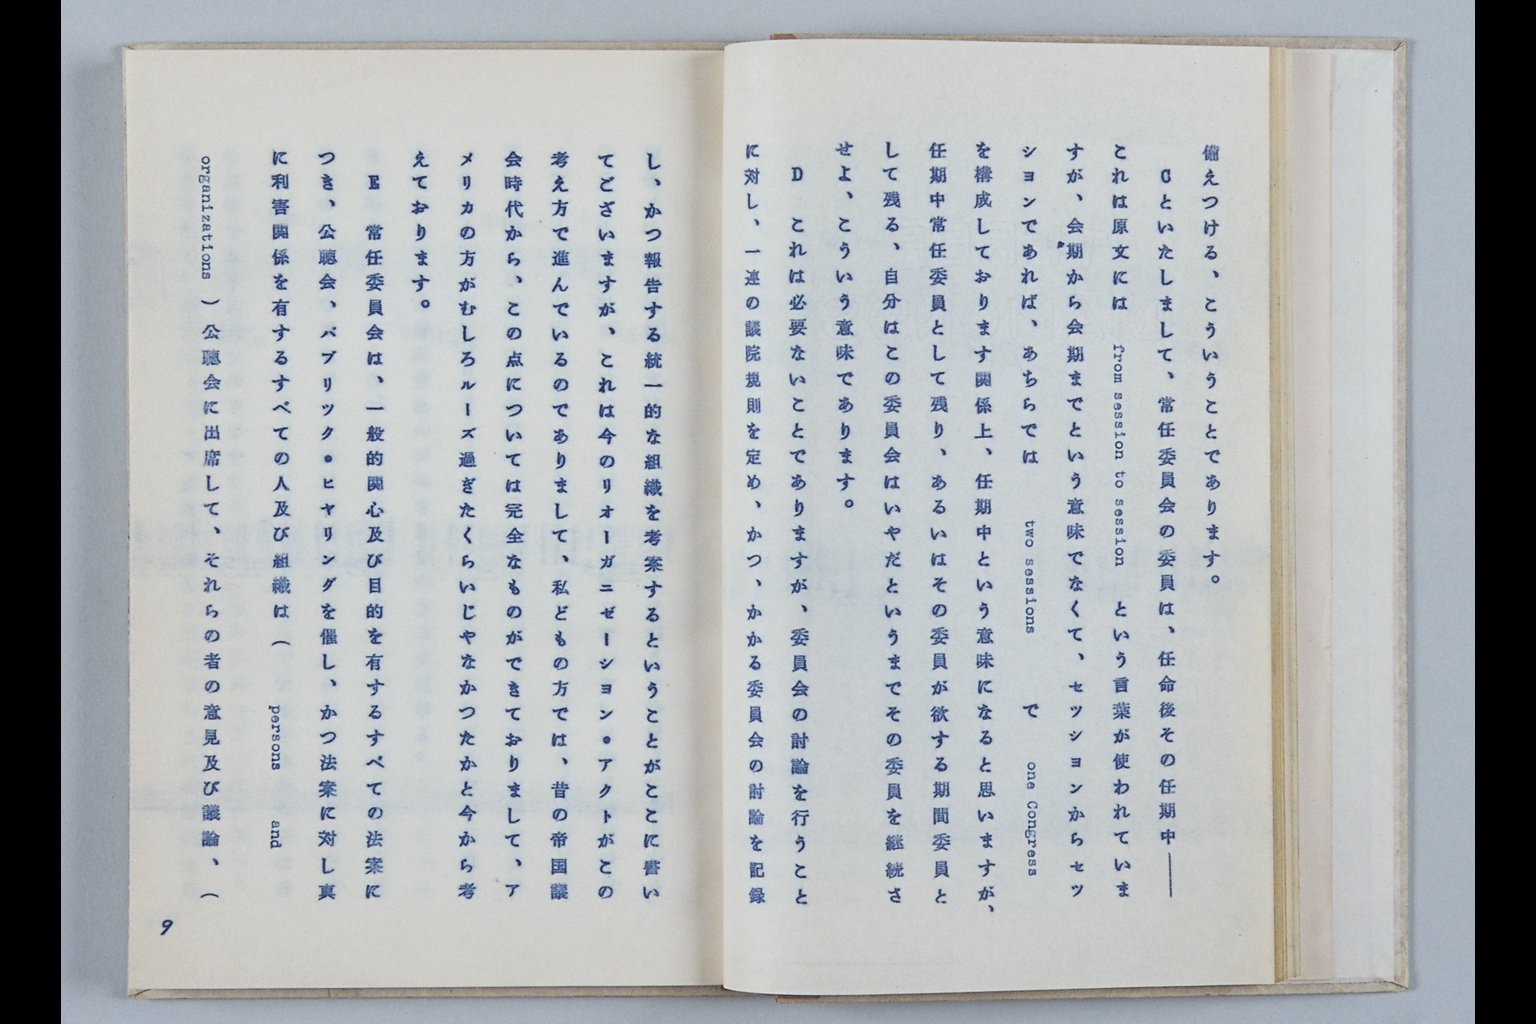 備えつける、こういうことであります。
Cといたしまして、常任委員会の委員は、任命後その任期中――
これは原文には from session to session という言葉が使われていま
すが、会期から会期までという意味でなくて、セツシヨンからセツ
シヨンであれば、あちらでは two sessions で one Congress
を構成しております関係上、任期中という意味になると思いますが、
任期中常任委員として残り、あるいはその委員が欲する期間委員と
して残る、自分はこの委員会はいやだというまでその委員を継続さ
せよ、こういう意味であります。
D これは必要ないことでありますが、委員会の討論を行うこと
に対し、一連の議院規則を定め、かつ、かかる委員会の討論を記録
し、かつ報告する統一的な組織を考案するということがここに書い
てございますが、これは今のリオーガニゼーシヨン・アクトがこの
考え方で進んでいるのでありまして、私どもの方では、昔の帝国議
会時代から、この点については完全なものができておりまして、ア
メリカの方がむしろルーズ過ぎたくらいじやなかつたかと今から考
えております。
E 常任委員会は、一般的関心及び目的を有するすべての法案に
つき、公聴会、パブリツク・ヒヤリングを催し、かつ法案に対し真
に利害関係を有するすべての人及び組織は（ persons and
organizations ）公聴会に出席して、それらの者の意見及び議論、（
9